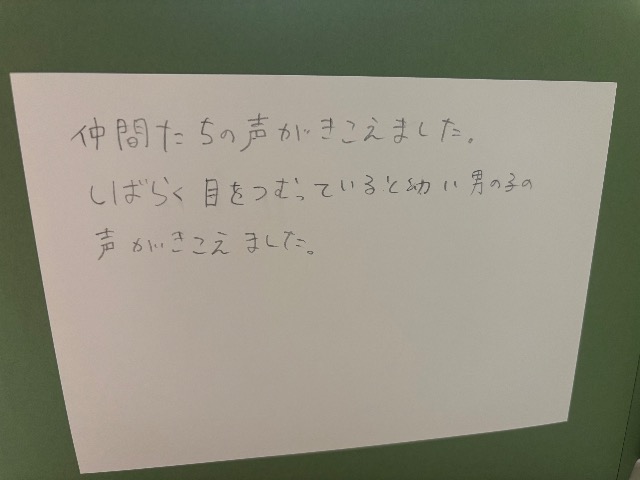 仲間たちの声がきこえました。
しばらく目をつむっていると幼い男の子の
声がきこえました。